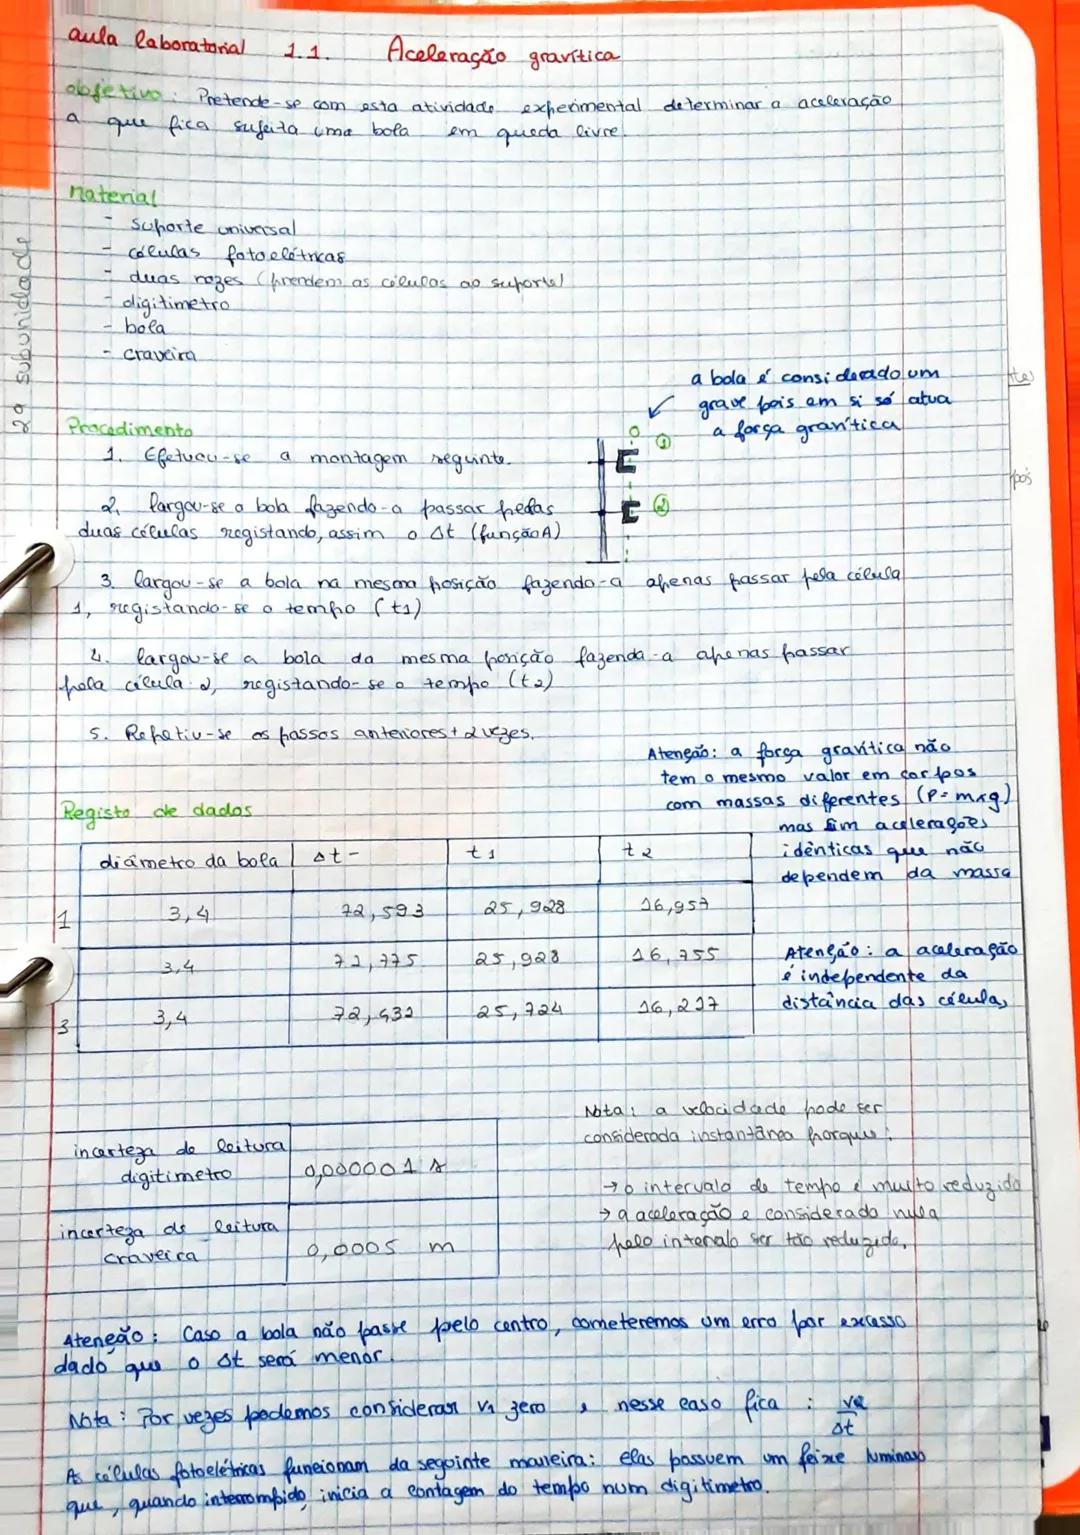 aula laboratorial 1.1. Aceleração gravítica
objetivo: Pretende-se com esta atividade experimental determinar a aceleração
a que fica sujeita uma bola em queda livre.
2ª subunidade
material
- suporte universal
- células fotoelétricas
- duas nozes (prendem as células ao suporte)
- digitimetro
- bola
- craveira
a bola é considerado um
grave pois em si só atua
a força gravítica
Procedimento
1. Efetuou-se a montagem seguinte.
1
2
2. largou-se a bola fazendo-a passar pelas
duas células registando, assim o Δt (função A)
3. largou-se a bola na mesma posição fazendo-a apenas passar pela célula
1, registando-se o tempo (t1)
4. largou-se a bola da mesma posição fazenda-a apenas passar
pela célula 2, registando-se o tempo (t2)
5. Repetiu-se os passos anteriores + 2 vezes.
Atenção: a força gravítica não
tem o mesmo valor em corpos
com massas diferentes (P=mxg)
mas sim acelerações
idênticas que não
dependem da massa
Registo de dados
diâmetro da bola Δt- t1 t2
1 3,4 72,593 25,928 16,957
3,4 71,775 25,928 16,755
3 3,4 72,432 25,724 16,217
Atenção: a aceleração
é independente da
distância das células
Nota: a velocidade pode ser
considerada instantânea porque:
→ o intervalo de tempo é muito reduzido
→ a aceleração e considerada nula
pelo intervalo ser tão reduzido.
incerteza de leitura
digitimetro 0,000001 s
incerteza de leitura
craveira 0,0005 m
Atenção: Caso a bola não passe pelo centro, cometeremos um erro por excesso
dado que o Δt será menor.
Nota: Por vezes podemos considerar v1 zero e nesse caso fica: v2
Δt
As células fotoelétricas funcionam da seguinte maneira: elas possuem um feixe luminoso
que, quando interrompido, inicia a contagem do tempo num digitimetro.